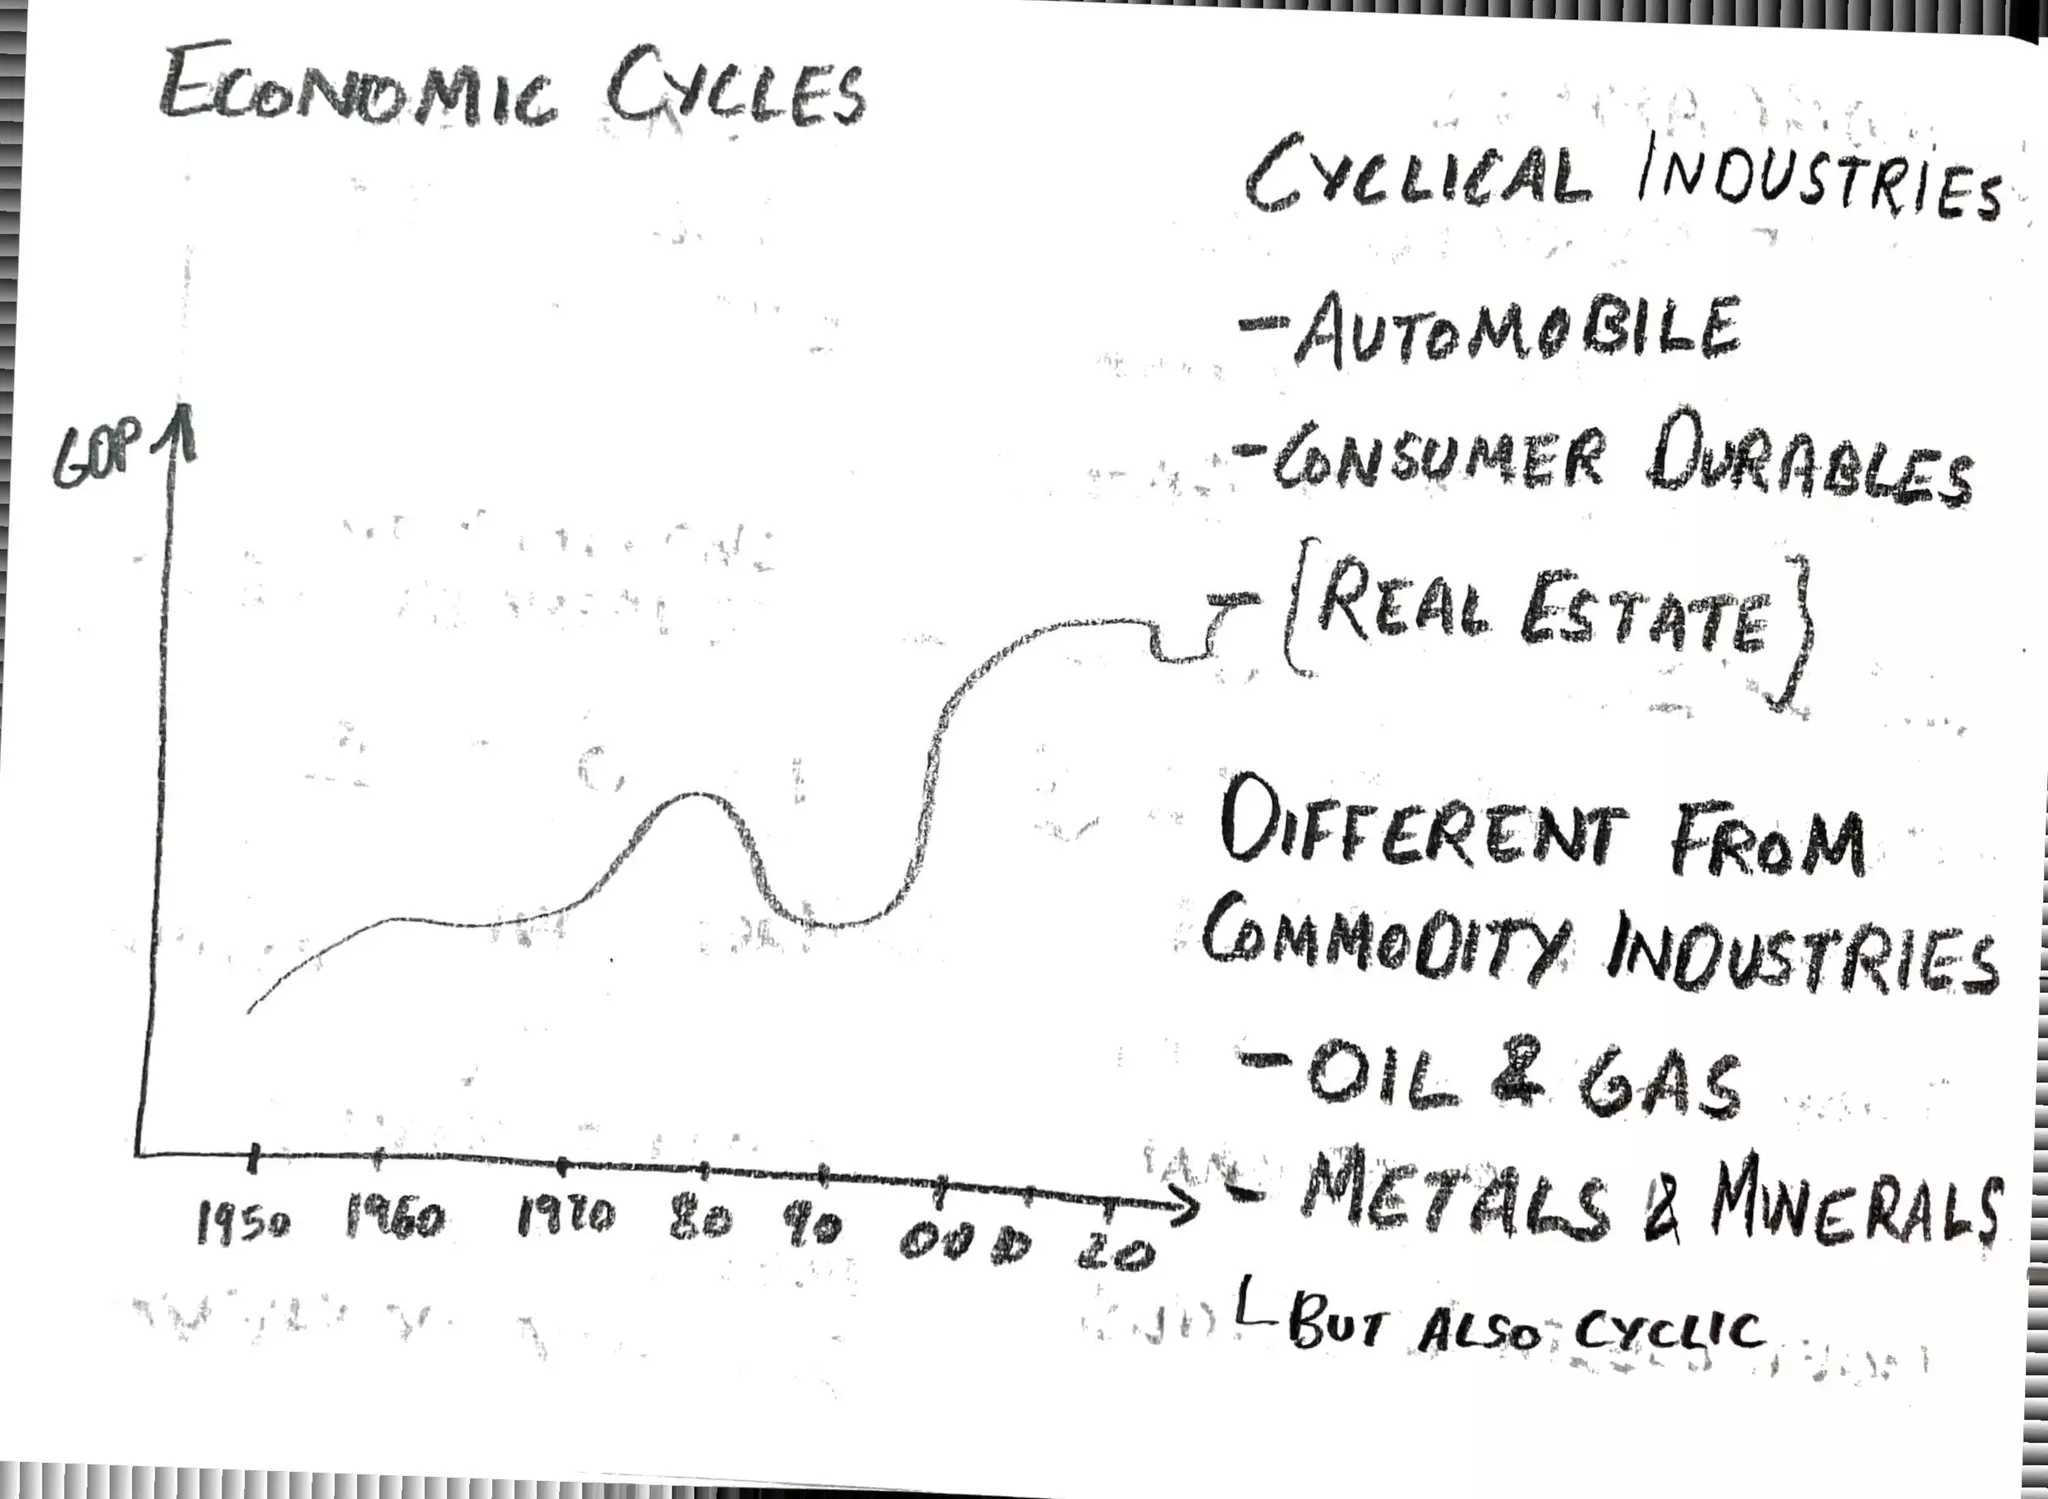 ECONOMIC CYCLES
GDP
1950 1960 1970 80 90 00 10 20
CYCLICAL INDUSTRIES
- AUTOMOBILE
- CONSUMER DURABLES
- [REAL ESTATE]
DIFFERENT FROM
COMMODITY INDUSTRIES
- OIL & GAS
- METALS & MINERALS
BUT ALSO CYCLIC